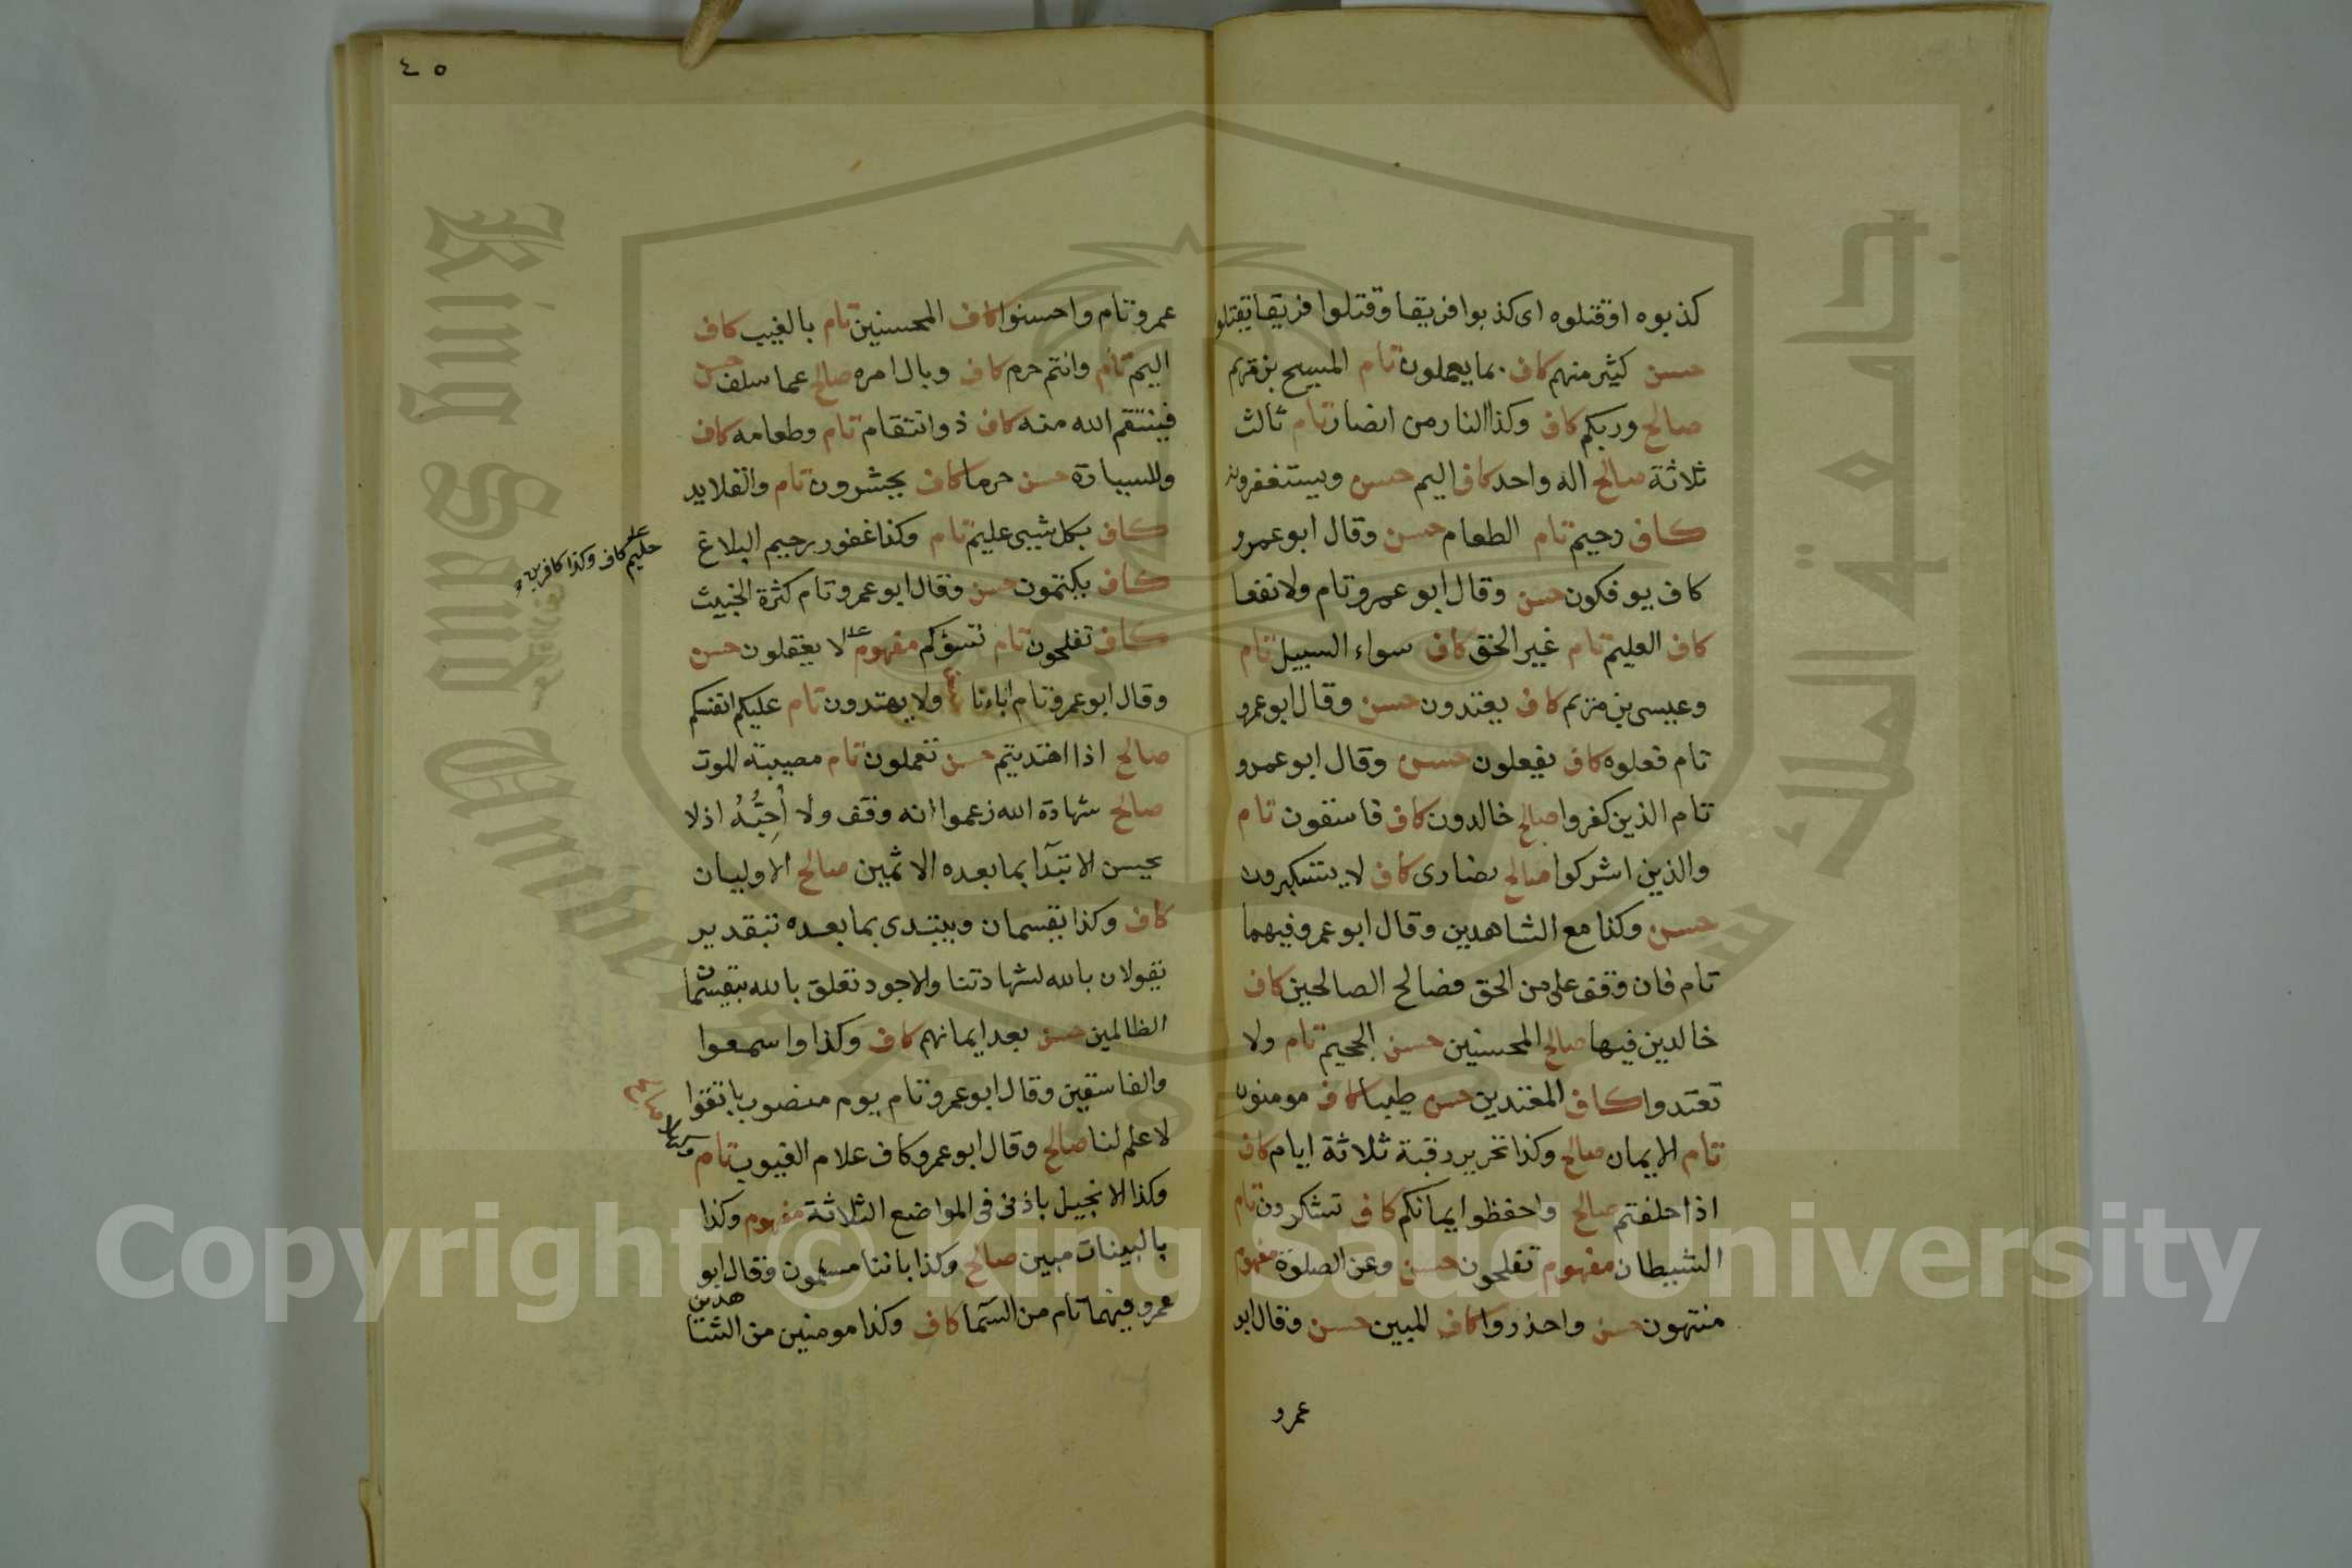 كذبوه او قتلوه اى كذبوا فريقا وقتلوا فريقا يقتلو
حسن كثير منهم كاف بما يعملون تام المسيح بن مريم
صالح وربكم كاف وكذا النار من انصار تام ثالث
ثلاثة صالح اله واحد كاف اليم حسن ويستغفرونه
كاف رحيم تام الطعام حسن وقال ابو عمرو
كاف يوفكون حسن وقال ابو عمرو تام ولا نفعا
كاف العليم تام غير الحق كاف سواء السبيل تام
وعيسى بن مريم كاف يعتدون حسن وقال ابو عمرو
تام فعلوه كاف يفعلون حسن وقال ابو عمرو
تام الذين كفروا صالح خالدون كاف فاسقون تام
والذين اشركوا صالح نصارى كاف لا يستكبرون
حسن وكذا مع الشاهدين وقال ابو عمرو فيهما
تام فان وقف على من الحق فصالح الصالحين كاف
خالدين فيها صالح المحسنين حسن الجحيم تام ولا
تعتدوا كاف المعتدين حسن طيبا كاف مومنون
تام الايمان صالح وكذا تحرير رقبة ثلاثة ايام كاف
اذا حلفتم صالح واحفظوا ايمانكم كاف تشكرون تام
الشيطان مفهوم تفلحون حسن وعن الصلوة مفهوم
منتهون حسن واحذروا كاف المبين حسن وقال ابو
عمرو
٤٥
عمرو تام واحسنوا كاف المحسنين تام بالغيب كاف
اليم تام وانتم حرم كاف وبال امره صالح عما سلف حسن
فينتقم الله منه كاف ذو انتقام تام وطعامه كاف
وللسيارة حسن حرما كاف تحشرون تام والقلايد
كاف بكل شيى عليم تام وكذا غفور رحيم البلاغ
كاف يكتمون حسن وقال ابو عمرو تام كثرة الخبيث
كاف تفلحون تام تسؤكم مفهوم لا يعقلون حسن
حليم كاف وكذا كافرين
وقال ابو عمرو تام اباءنا ولا يهتدون تام عليكم انفسكم
صالح اذا اهتديتم حسن تعملون تام مصيبة الموت
صالح شهادة الله زعموا انه وقف ولا أحِبُّهُ اذ لا
يحسن الابتدآ بما بعده الاثمين صالح الاوليان
كاف وكذا يقسمان ويبتدى بما بعده بتقدير
يقولان بالله لشهادتنا والاجود تعلق بالله بيقسمان
الظالمين حسن بعد ايمانهم كاف وكذا واسمعوا
والفاسقين وقال ابو عمرو تام يوم منصوب باتقوا
لا علم لنا صالح وقال ابو عمرو كاف علام الغيوب تام
وكذا الانجيل باذنى فى المواضع الثلاثة مفهوم وكذا
بالبينات مبين صالح وكذا باننا مسلمون وقال ابو
عمرو فيهما تام من السمآ كاف وكذا مومنين من الشاهدين
Copyright © King Saud University
King Saud University
جامعة الملك سعود